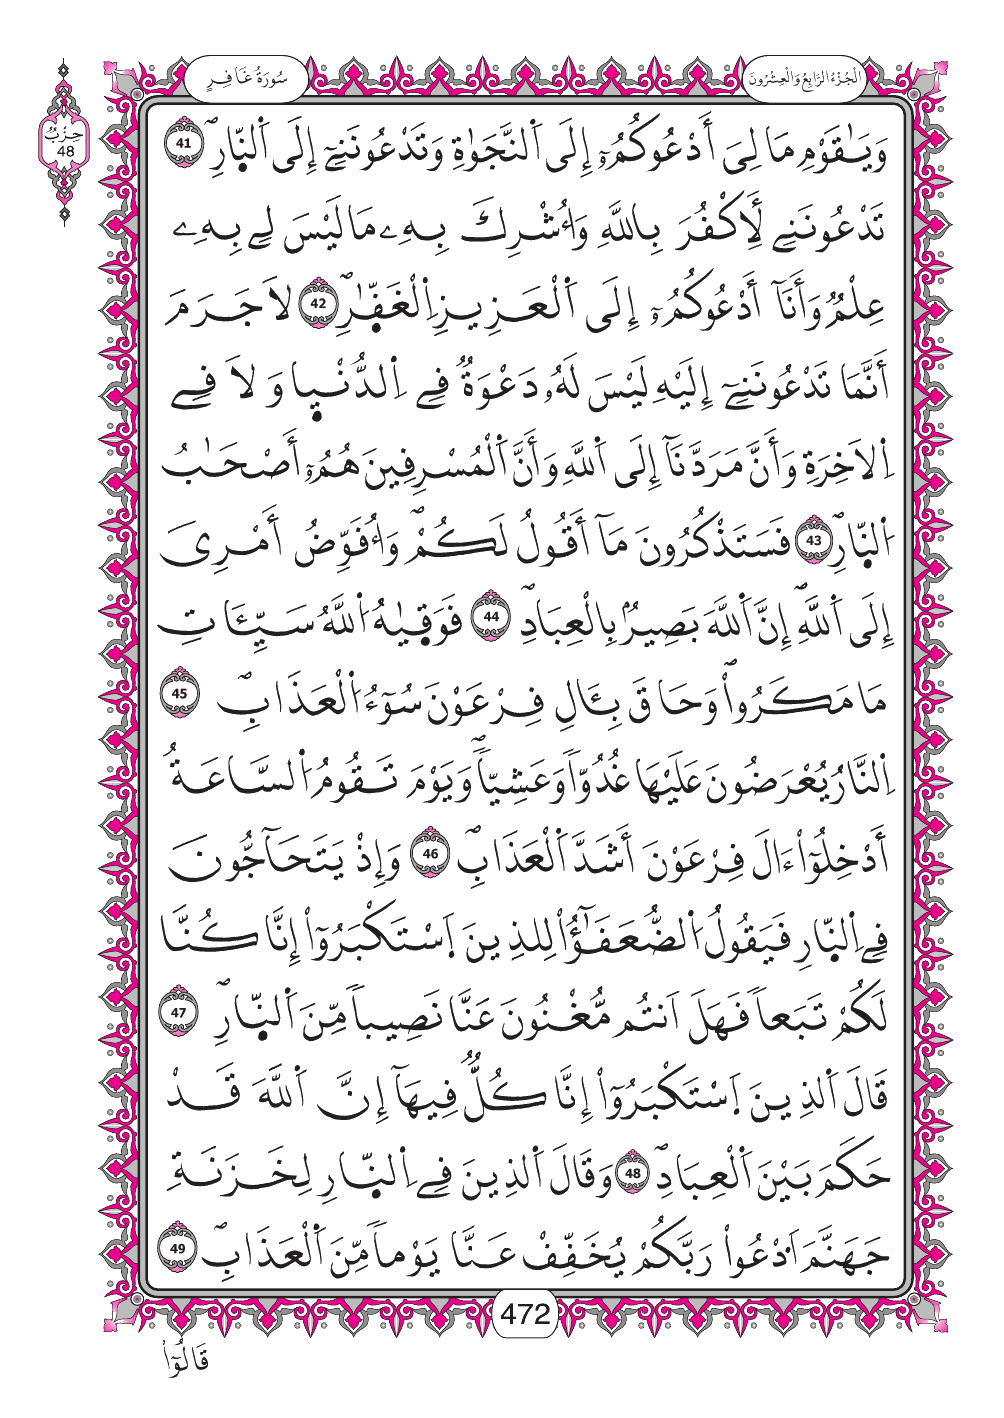 سُورَةُ غَافِرٍ
اَلْجُزْءُ الرَّابِعُ وَالْعِشْرُونَ
حِزْبُ
48
وَيَٰقَوْمِ مَا لِيَ أَدْعُوكُمُۥٓ إِلَى اَ۬لنَّجَوٰةِ وَتَدْعُونَنِےٓ إِلَى اَ۬لنّ۪ارِۖ 41
تَدْعُونَنِے لِأَكْفُرَ بِاللَّهِ وَأُشْرِكَ بِهِۦ مَا لَيْسَ لِے بِهِۦ
عِلْمٞ وَأَنَآ أَدْعُوكُمُۥٓ إِلَى اَ۬لْعَزِيزِ اِ۬لْغَفّٰ۪رِۖ 42 لَا جَرَمَ
أَنَّمَا تَدْعُونَنِےٓ إِلَيْهِ لَيْسَ لَهُۥ دَعْوَةٞ فِے اِ۬لدُّنْي۪ا وَلَا فِے
اِ۬لَاخِرَةِ وَأَنَّ مَرَدَّنَآ إِلَى اَ۬للَّهِ وَأَنَّ اَ۬لْمُسْرِفِينَ هُمُۥٓ أَصْحَٰبُ
اُ۬لنّ۪ارِۖ 43 فَسَتَذْكُرُونَ مَآ أَقُولُ لَكُمْۖ وَأُفَوِّضُ أَمْرِيَ
إِلَى اَ۬للَّهِۖ إِنَّ اَ۬للَّهَ بَصِيرُۢ بِالْعِبَادِۖ 44 فَوَق۪يٰهُ اُ۬للَّهُ سَيِّـَٔاتِ
مَا مَكَرُواْۖ وَحَاقَ بِـَٔالِ فِرْعَوْنَ سُوٓءُ اُ۬لْعَذَابِۖ 45
اِ۬لنَّارُ يُعْرَضُونَ عَلَيْهَا غُدُوّاٗ وَعَشِيّاٗۖ وَيَوْمَ تَقُومُ اُ۬لسَّاعَةُ
أَدْخِلُوٓاْ ءَالَ فِرْعَوْنَ أَشَدَّ اَ۬لْعَذَابِۖ 46 وَإِذْ يَتَحَآجُّونَ
فِے اِ۬لنّ۪ارِ فَيَقُولُ اُ۬لضُّعَفَٰٓؤُاْ لِلذِينَ اَ۪سْتَكْبَرُوٓاْ إِنَّا كُنَّا
لَكُمْ تَبَعاٗ فَهَلَ اَنتُم مُّغْنُونَ عَنَّا نَصِيباٗ مِّنَ اَ۬لنّ۪ارِۖ 47
قَالَ اَ۬لذِينَ اَ۪سْتَكْبَرُوٓاْ إِنَّا كُلّٞ فِيهَآ إِنَّ اَ۬للَّهَ قَدْ
حَكَمَ بَيْنَ اَ۬لْعِبَادِۖ 48 وَقَالَ اَ۬لذِينَ فِے اِ۬لنّ۪ارِ لِخَزَنَةِ
جَهَنَّمَ اَ۟دْعُواْ رَبَّكُمْ يُخَفِّفْ عَنَّا يَوْماٗ مِّنَ اَ۬لْعَذَابِۖ 49
472
قَالُوٓاْ